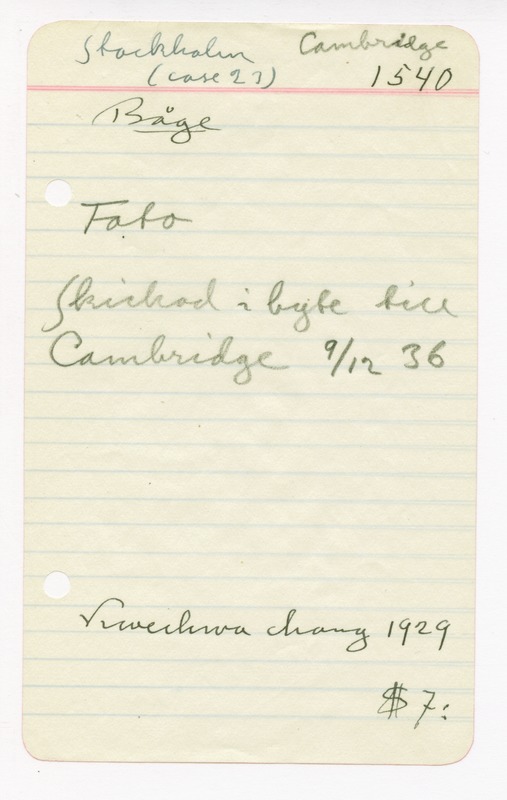 Stockholm Cambridge
(case 27) 1540
Båge
Foto
Skickad i byte till
Cambridge 9/12 36
chang 1929
$ 7: